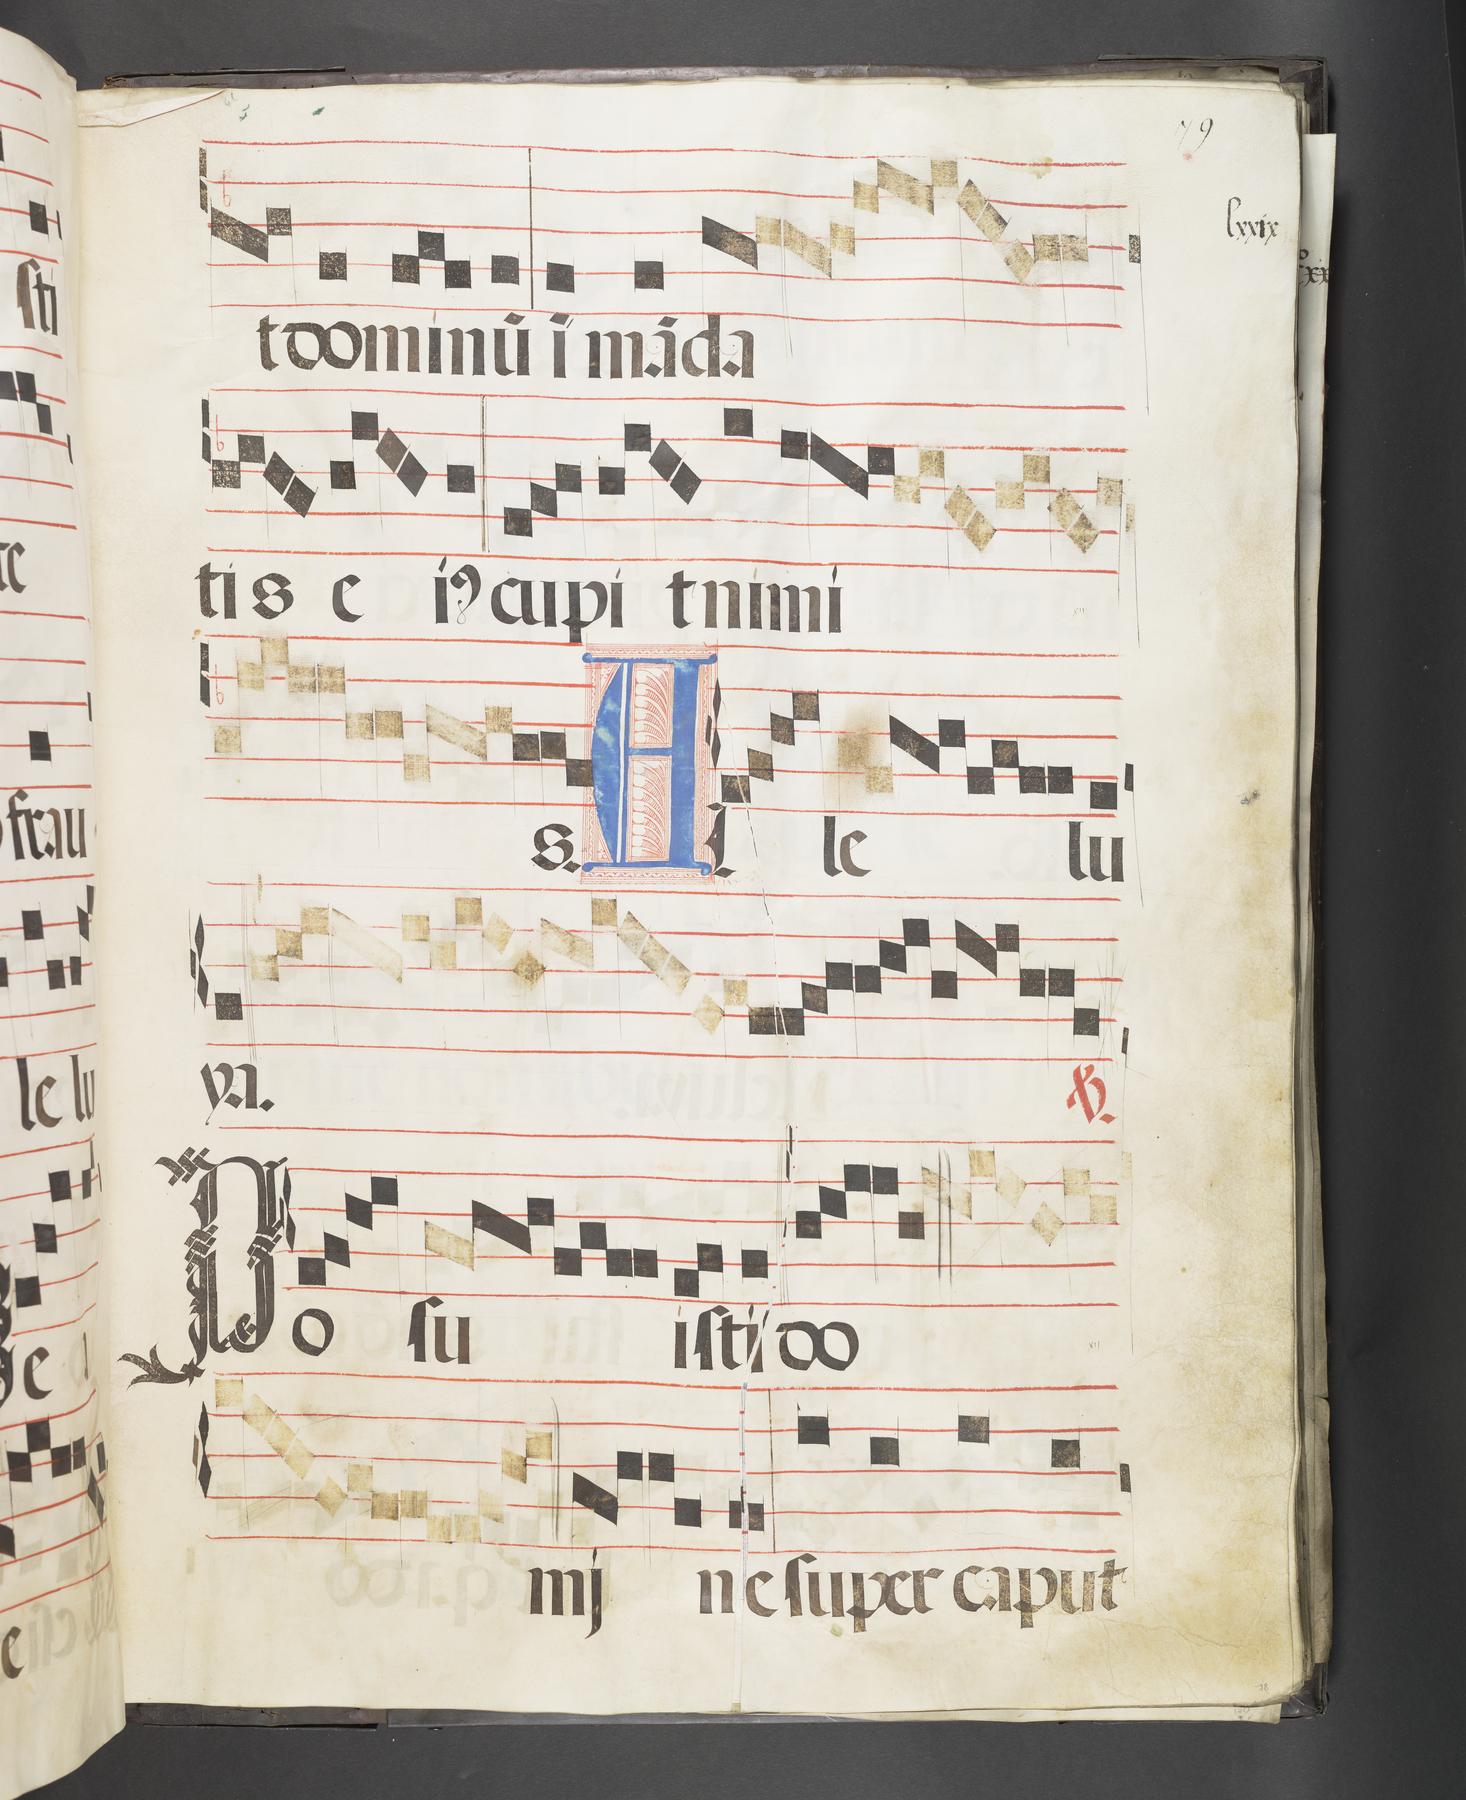 79
lxxix
t dominū ī māda
tis e iꝯ cupi t nimi
s. A l le lu
ya. ℣.
Po su isti do
mj ne super caput
sti
te
frau
le lu
ge a
e